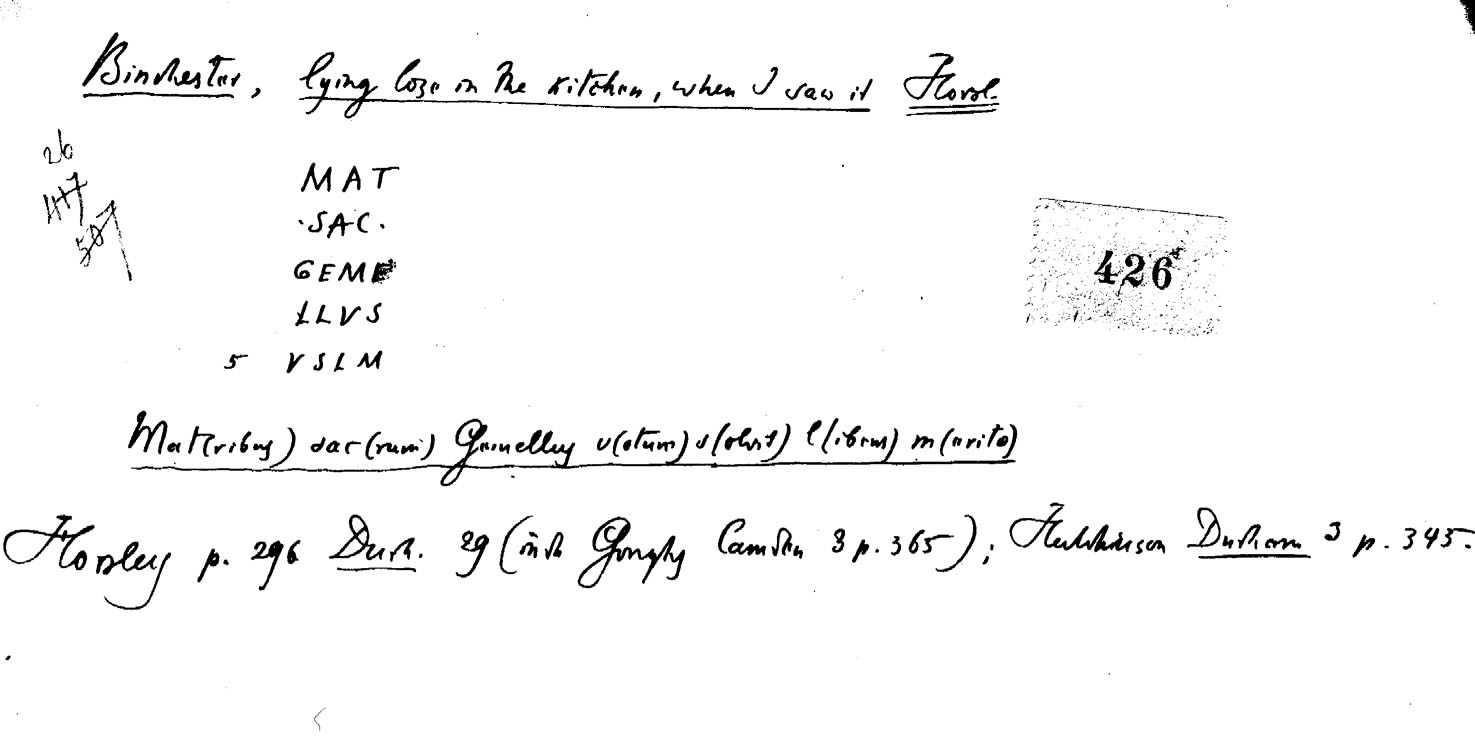 Binchester, lying lose in the kitchen, when I saw it Horsl.
26
417
507
MAT
·SAC.
GEME
LLVS
426
5 VSLM
Mat(ribus) sac(rum) Gemellus v(otum) s(olvit) l(ibens) m(erito)
Horsley p. 296 Durh. 29 (inde Goughs Camden 3 p. 365); Hutchinson Durham 3 p. 345.